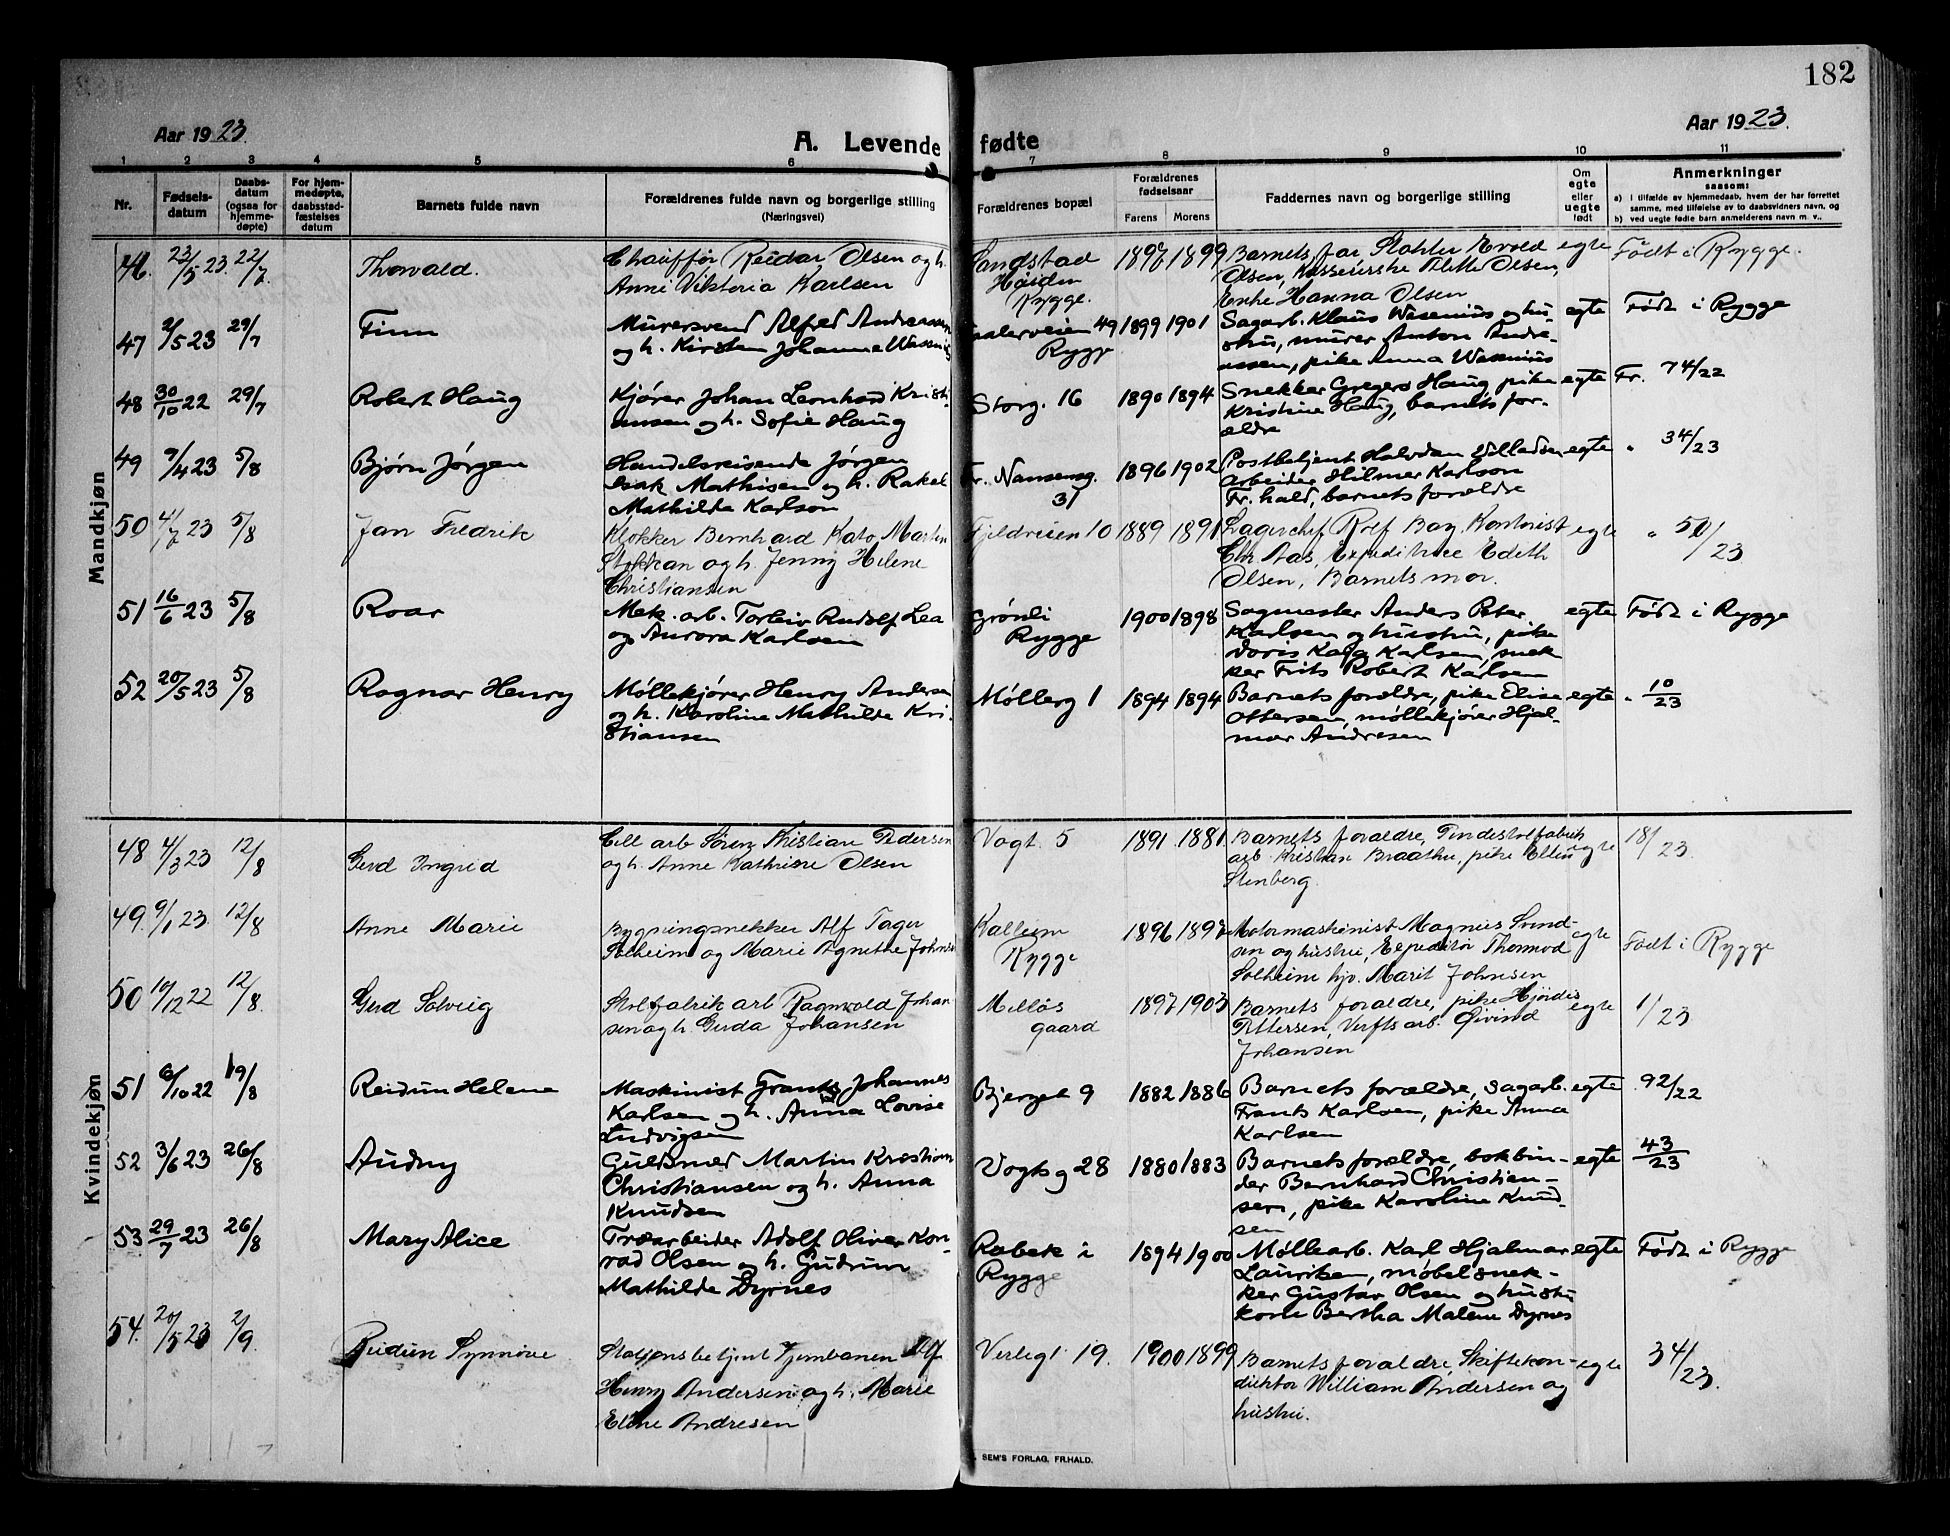 182
Aar 1923.
A. Levende fødte
Aar 1923.
1 2 3 4 5 6 7 8 9 10 11
Nr.
Fødsels-
datum
Daabs-
datum
(ogsaa for
hjemme-
døpte)
For hjem-
medøpte,
daabsstad-
fæstelses
datum
Barnets fulde navn
Forældrenes fulde navn og borgerlige stilling
(Næringsvei)
Forældrenes bopæl
Forældrenes
fødselsaar
Farens Morens
Faddernes navn og borgerlige stilling
Om
egte
eller
uegte
født
Anmerkninger
saasom:
a) i tilfælde av hjemmedaab, hvem der har forrettet
samme, med tilføielse av to daabsvidners navn, og
b) ved uegte fødte barn anmelderens navn m. v.,
Mandkjøn
46. 23/5 23. 22/7. Thorvald. Chauffør Reidar Olsen og h.
Anne Viktoria Karlsen
Sandstad
Høiden
Rygge.
1897 1899 Barnets far, Evald
Olsen, Olsen,
Enke Hanna Olsen
egte Født i Rygge.
47 2/5 23 29/7 Finn Murersvend Alfred Andreassen
og h. Kirsten Johanne Wasenius
49
Rygge
1899 1901 Sagarb. Klaus Wasenius og hu-
stru, murer Anton Andre-
assen, pike Anna Wasenius
egte Født i Rygge
48 30/10 22 29/7 Robert Haug Kjører Johan Leonhard Kristi-
ansen og h. Sofie Haug
Storg. 16 1890 1894 Snekker Gregers Haug, pike
Kristine Haug, barnets for-
ældre
egte Fr. 74/22
49 9/4 23 5/8 Bjørn Jørgen Handelsreisende Jørgen
Isak Mathisen og h. Rakel
Mathilde Karlson
Fr. Nanseng.
31
1896 1902 Postbetjent Halvdan Willadsen
arbeider Hilmer Karlson
Fr.hald, barnets forældre
egte " 34/23
50 4/7 23 5/8 Jan Fredrik Klokker Bernhard Kato Martin
Stokkan og h. Jenny Helene
Christiansen
Fjeldveien 10 1889 1891 Lagerchef Rolf Bay, Kontorist
Chr. Aas, Expeditrice Edith
Olsen, Barnets mor.
egte "
51 16/6 23 5/8 Roar Mek. arb. Torleiv Rudolf Lea
og Aurora Karlsen
Grønli
Rygge
1900 1898 Sagmester Anders Peter
Karlsen og hustru, pike
Doris Karlsen, snek
ker Frits Robert Karlsen
egte Født i Rygge
52 20/5 23 5/8 Ragnar Henry Møllekjører Henry Andersen
og h. Karoline Mathilde Kri-
stiansen
Mølleg 1 1894 1894 Barnets forældre, pike Elise
Ottersen, møllekjører Hjal-
mar Andresen
egte " 10/23
Kvindekjøn
48 4/3 23 12/8 Gerd Ingrid Cell arb Søren Kristian Pedersen
og h. Anne Kathrine Olsen
Vogt. 5 1891 1881 Barnets forældre, Pindestolfabrik
arb. Kristian Braathu, pike Ellen
Stenberg.
egte 18/23.
49. 9/1 23 12/8 Anne Marie Bygningsnekker Alf Tager
Solheim og Marie Agnethe Johnsen
Kalleum
Rygge
1896 1897 Motormaskinist Magnus Svend-
sen og hustru, Expeditør Thormod
Solheim hjv. Marit Johnsen
egte Født i Rygge
50 10/12 22 12/8. Gerd Solveig Stolfabrik arb Ragnvald Johan-
sen og h. Gerda Johansen
Melløs
gaard
1897 1903 Barnets forældre, pike Hjørdis
Pettersen, Verfts arb. Øivind
Johansen
egte 1/23
51 6/10 22 19/8 Reidun Helene Maskinist Frants Johannes
Karlsen og h. Anna Lovise
Ludvigsen
Bjerget 9 1882 1886 Barnets forældre, sagarb.
Frants Karlsen, pike Anna
Karlsen
egte 92/22
52 3/6 23 26/8 Audny Guldsmed Martin Kristian
Christiansen og h. Anna
Knudsen
Vogts g 28 1880 1883 Barnets forældre, bokbin-
der Bernhard Christian-
sen, pike Karoline Knud-
sen
egte 43/23
53. 29/7 23 26/8 Mary Alice Træarbeider Adolf Oliver Kon-
rad Olsen og h. Gudrun
Mathilde Dyrnes
Rabek i
Rygge
1894 1900 Møllearb. Karl Hjalmar
Lauritsen, møbelsnek-
ker Gustav Olsen og hustru
kone Bertha Malene Dyrnes
egte Født i Rygge
54. 20/5 23 2/9. Reidun Synnøve Stasjonsbetjent Jernbanen Alf
Henry Andersen og h. Marie
Eline Andresen
Verlegt 19. 1900 1899 Barnets forældre, Skiftekon-
duktør William Andersen og
hustru.
egte 34/23.
SEM'S FORLAG, FR.HALD.